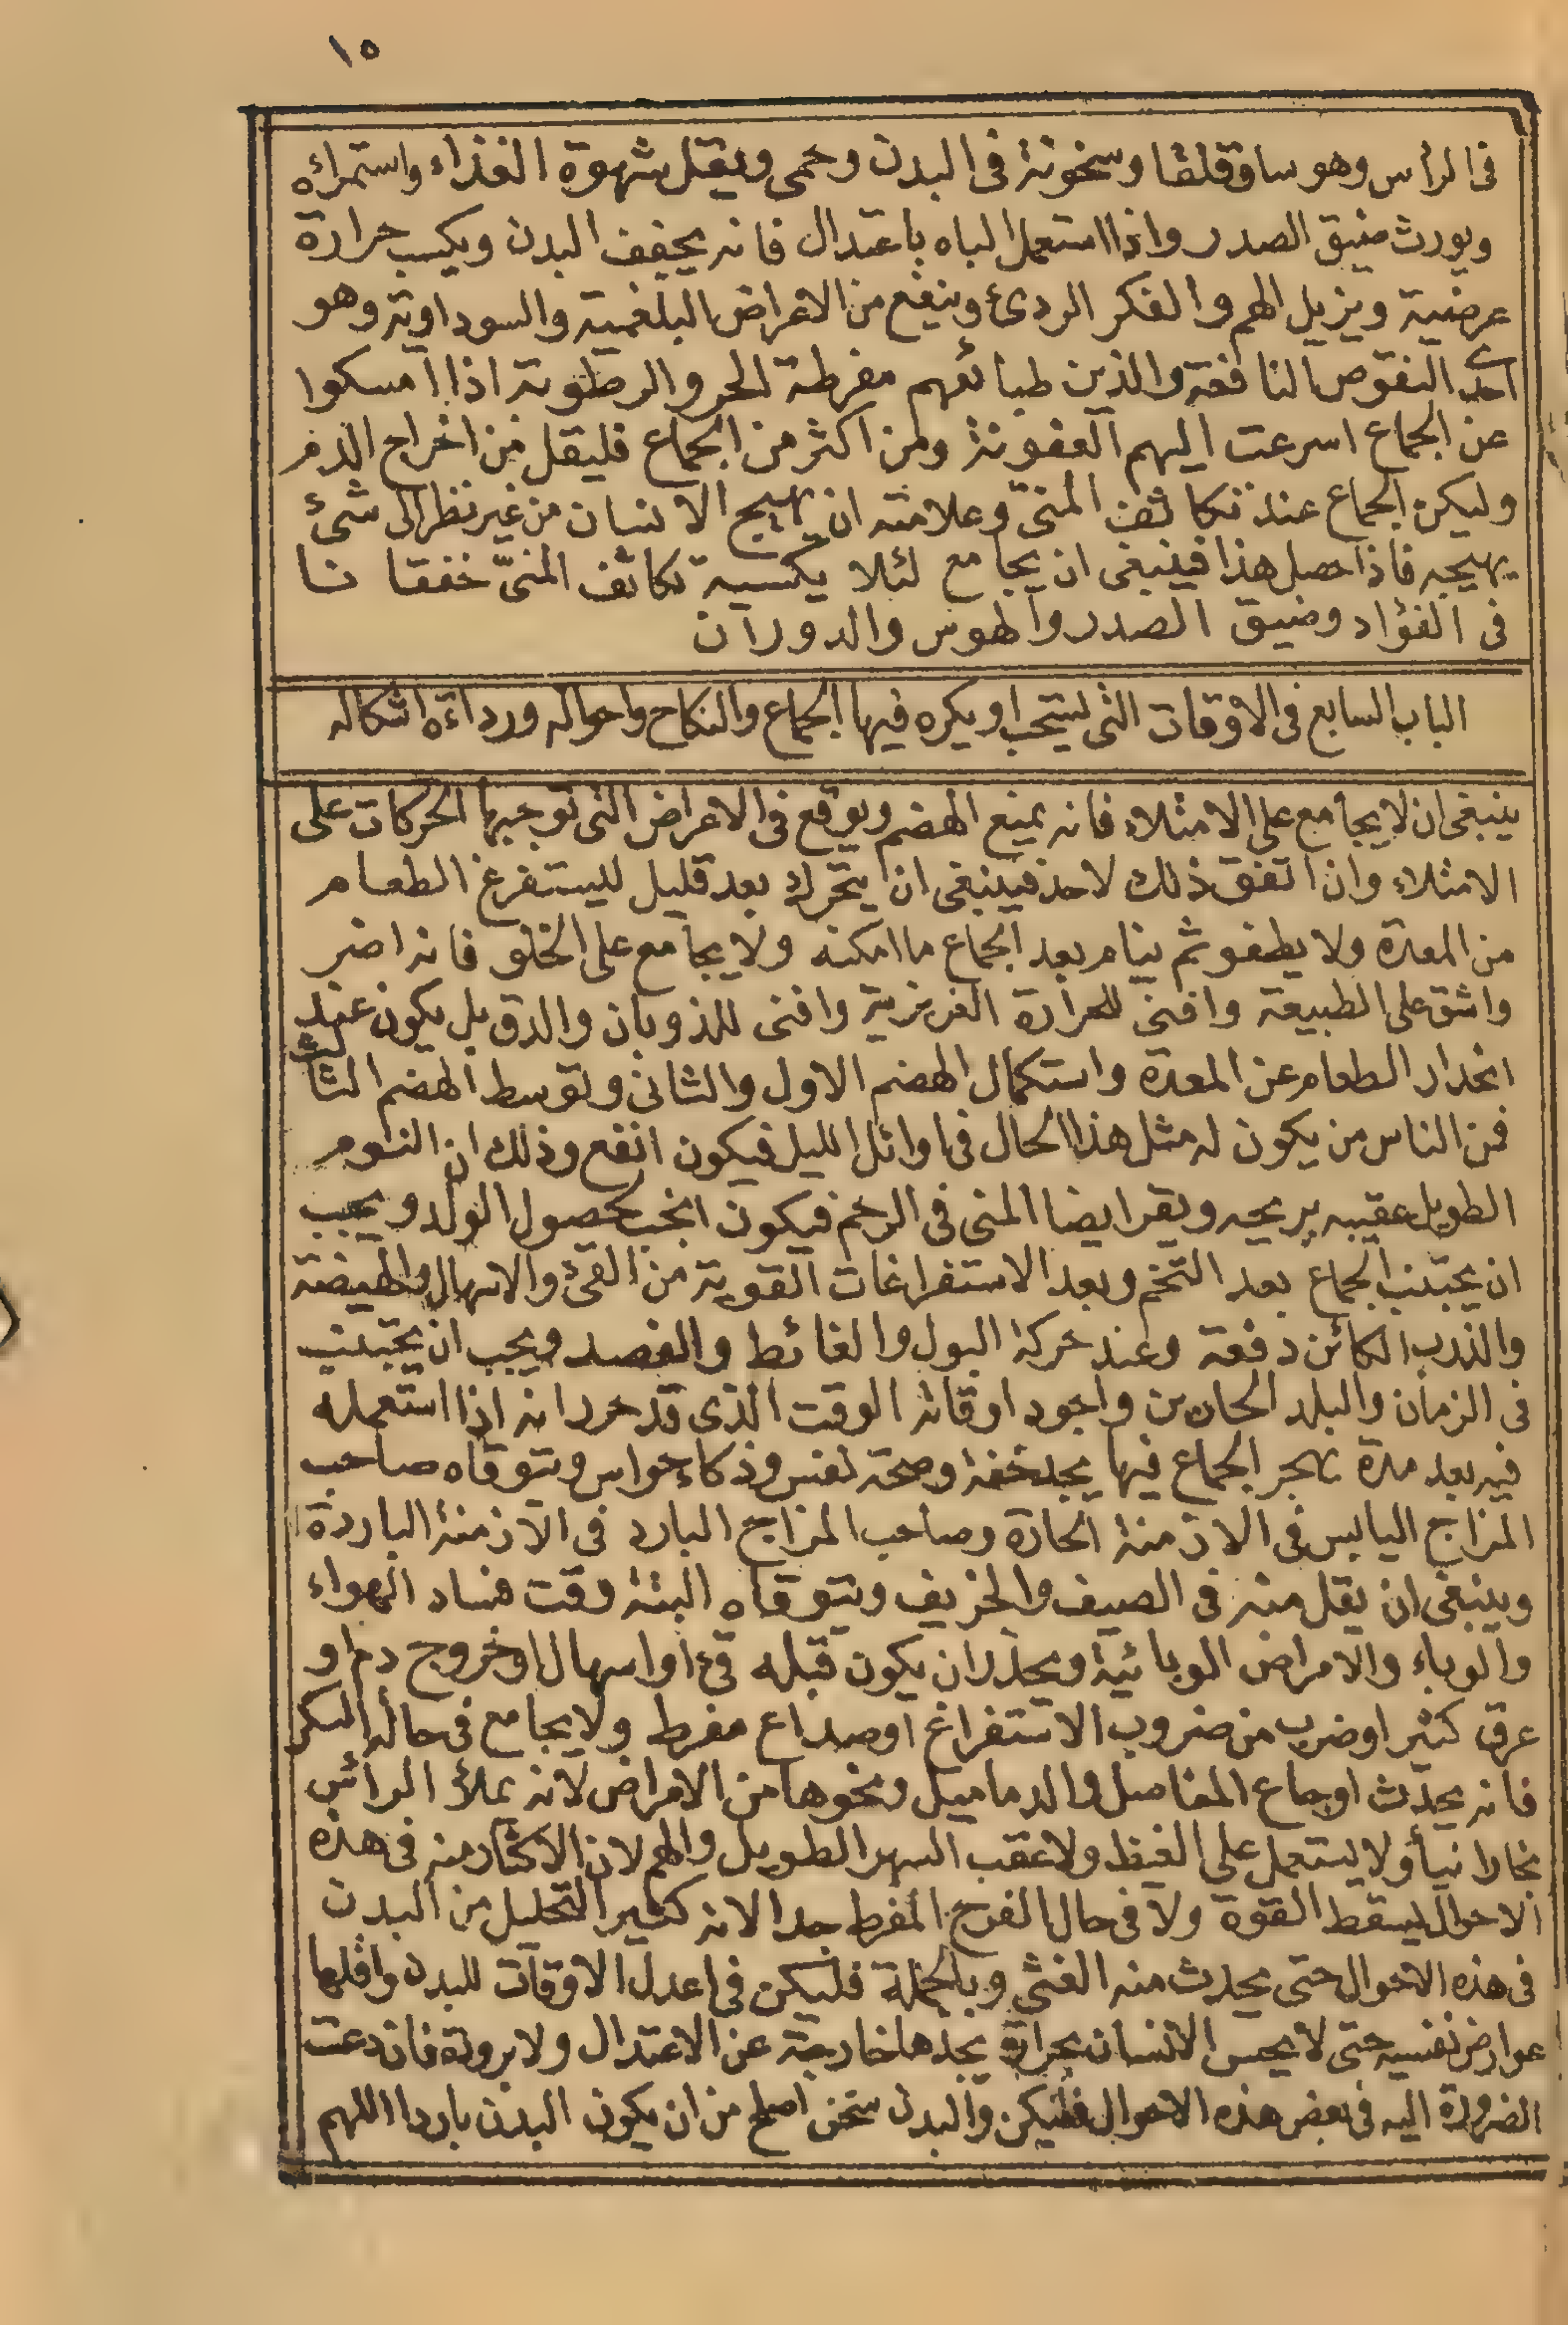 ١٥
فى الرأس وهوسا وقلقا وسخونة فى البدن وحمى ويقل شهوة الغذاء واستمراؤه
ويورث ضيق الصدر واذا استعمل الباه باعتدال فانه يجفف البدن ويكسب حرارة
عرضية ويزيل الهم والفكر الردئ وينفع من الاعراض البلغمية والسوداوية وهو
احد النقوص النافعة والذين طبائعهم مفرطة الحر والرطوبة اذا امسكوا
عن الجماع اسرعت اليهم العفونة ومن اكثر من الجماع فليقل من اخراج الدم
وليكن الجماع عند تكاثف المنى وعلامته ان يهيج الانسان من غير نظر الى شئ
يهيجه فاذا حصل هذا فينبغى ان يجامع لئلا يكسبه تكاثف المنىّ خفقا نا
فى الفؤاد وضيق الصدر والهوس والدوران
الباب السابع فى الاوقات التى يستحب او يكره فيها الجماع والنكاح واحواله ورداءة اشكاله
ينبغى ان لا يجامع على الامتلاء فانه يمنع الهضم ويوقع فى الاعراض التى توجبها الحركات على
الامتلاء وان اتفق ذلك لاحد فينبغى ان يتحرك بعد قليل ليستفرغ الطعام
من المعدة ولا يطفو ثم ينام بعد الجماع ما امكنه ولا يجامع على الخلو فانه اضر
واشق على الطبيعة وافنى للحرارة الغريزية وافنى للذوبان والدق بل يكون عند
انحدار الطعام عن المعدة واستكمال الهضم الاول والثانى وتوسط الهضم الثالث
فمن الناس من يكون له مثل هذا الحال فى اوائل الليل فيكون انفع وذلك ان النوم
الطويل عقيبه يريحه ويقر ايضا المنى فى الرحم فيكون انجب لحصول الولد ويجب
ان يجتنب الجماع بعد التخم وبعد الاستفراغات القوية من القئ والاسهال والهيضة
والذرب الكائن دفعة وعند حركة البول والغائط والفصد ويجب ان يجتنب
فى الزمان والبلد الحارين واجود اوقاته الوقت الذى قد حرر انه اذا استعمله
فيه بعد مدة يهجر الجماع فيها يجد خفة وصحة نفس وذكاء حواس ويتوقاه صاحب
المزاج اليابس فى الازمنة الحارة وصاحب المزاج البارد فى الازمنة الباردة
وينبغى ان يقل منه فى الصيف والخريف ويتوقاه البتة وقت فساد الهواء
والوباء والامراض الوبائية ويحذر ان يكون قبله قئ او اسهال او خروج دم او
عرق كثير او ضرب من ضروب الاستفراغ او صداع مفرط ولا يجامع فى حالة السكر
فانه يحدث اوجاع المفاصل والدماميل ونحوها من الامراض لانه يملأ الرأس
بخارا نيأ ولا يستعمل على الغيظ ولا عقب السهر الطويل والهم لان الاكثار منه فى هذه
الاحوال يسقط القوة ولا فى حال الفرح المفرط جدا لانه كثير التحليل من البدن
فى هذه الاحوال حتى يحدث منه الغشى وبالجملة فليكن فى اعدل الاوقات للبدن واقلها
عوارض نفسيه حتى لا يحس الانسان بحرارة يجدها خارجة عن الاعتدال ولا برودة فان دعت
الضرورة اليه فى بعض هذه الاحوال فليكن والبدن سخن اصلح من ان يكون البدن باردا اللهم